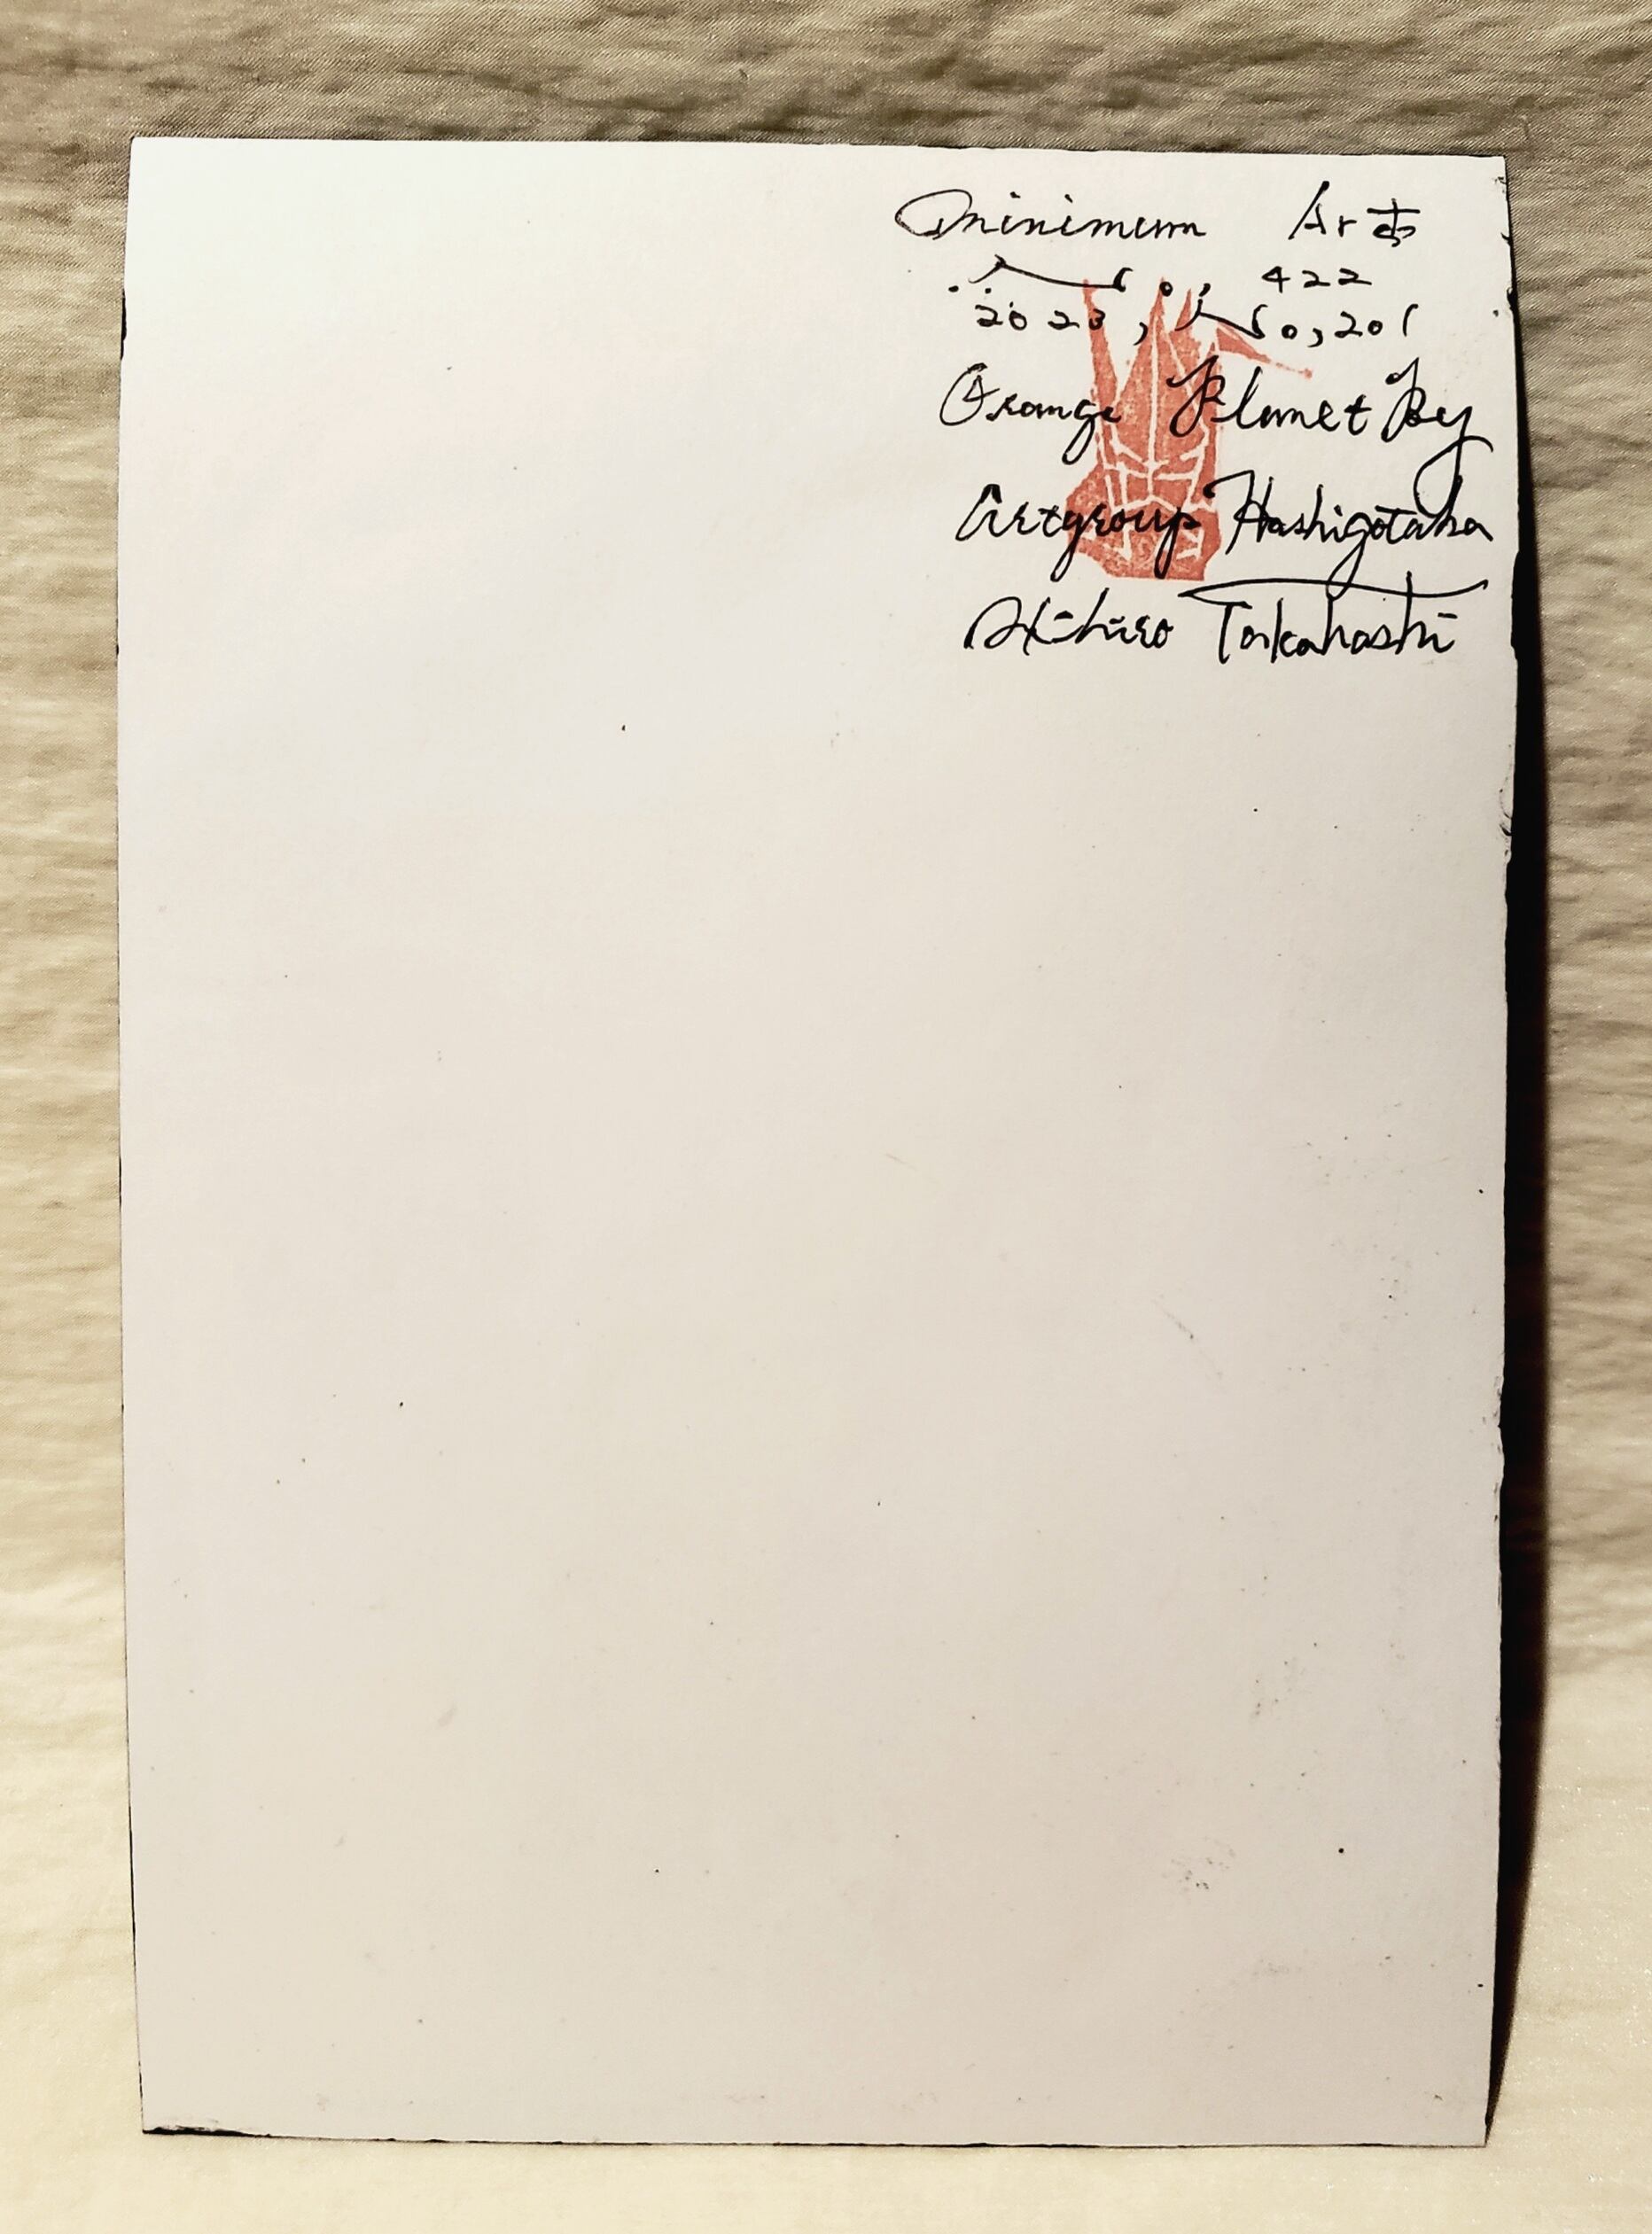 minimum Art
No, 422
2023, No,201
Orange Planet By
Artgroup Hashigotaka
Akihiro Takahashi